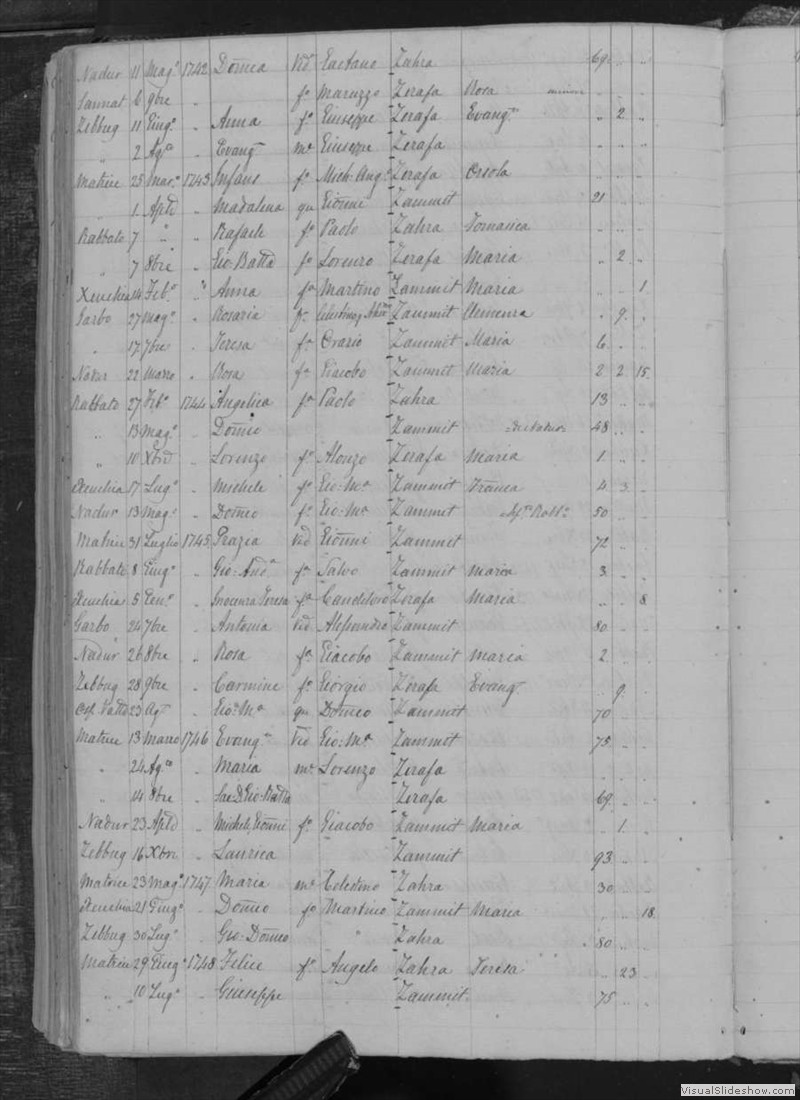 Nadur 11 Magº 1742 Domca Vid Gaetano Zahra 69 .. ..
Sannat 6 9bre .. fª Maruzzo Zerafa Rosa .. ..
Zebbug 11 Giugº .. Anna fª Giuseppe Zerafa Evangª .. 2 ..
.. 2 Agº .. Evangª mª Giuseppe Zerafa .. .. ..
Matrice 25 Marº 1743 Infans fª Mich. Angº Zerafa Orsola
.. 1 Aple .. Madalena qu Gionni Zammit 21
Rabbato 7 .. .. Rafaele fº Paolo Zahra Tomasica .. .. ..
.. 7 8bre .. Gio Batta fº Lorenzo Zerafa Maria .. 2 ..
Xeuchia 14 Febº .. Anna fª Martino Zammit Maria .. .. 1
Garbo 27 Magº .. Rosaria fª Celestino Zammit Clemenza .. 9 ..
.. 17 7bre .. Teresa fª Orazio Zammit Maria 6 .. ..
Nadur 22 Marzo .. Rosa fª Giacobo Zammit Maria 2 2 15
Rabbato 27 Febº 1744 Angelica fª Paolo Zahra 13 .. ..
.. 13 Magº .. Domco Zammit 48 .. ..
.. 10 Xbre .. Lorenzo fº Alonzo Zerafa Maria 1 .. ..
Xeuchia 17 Lugº .. Michele fº Gio: Mª Zammit Franca 4 3 ..
Nadur 13 Magº .. Domco fº Gio: Mª Zammit 50 ..
Matrice 31 Luglio 1745 Grazia Vid Gionni Zammit 72 ..
Rabbato 8 Giugº .. Gio: Andª fº Salvo Zammit Maria 3 ..
Xeuchia 5 Genº .. Inocenza Teresa fª Candiloro Zerafa Maria .. .. 8
Garbo 24 7bre .. Antonia Vid Alessandro Zammit 80 ..
Nadur 26 8bre .. Rosa fª Giacobo Zammit Maria 2 .. ..
Zebbug 28 9bre .. Carmine fº Giorgio Zerafa Evangª .. 9 ..
23 Agº .. Gio: Mª qu Domco Zammit 70 ..
Matrice 13 Marzo 1746 Evangª Vid Gio: Mª Zammit 75 ..
.. 24 Agº .. Maria mª Lorenzo Zerafa .. .. ..
.. 14 8bre .. Sac D Gio Batta Zerafa 69 .. ..
Nadur 23 Aple .. Michele, Gionni fº Giacobo Zammit Maria .. 1 ..
Zebbug 16 Xbre .. Laurica Zammit 93 .. ..
Matrice 23 Magº 1747 Maria mª Celestino Zahra 30 ..
Xeuchia 21 Giugº .. Domco fº Martino Zammit Maria .. .. 18
Zebbug 30 Lugº .. Gio: Domco " Zahra 80 .. ..
Matrice 29 Giugº 1748 Felice fº Angelo Zahra Teresa .. 23 ..
.. 10 Lugº .. Giuseppe Zammit 75 .. ..
VisualSlideshow.com